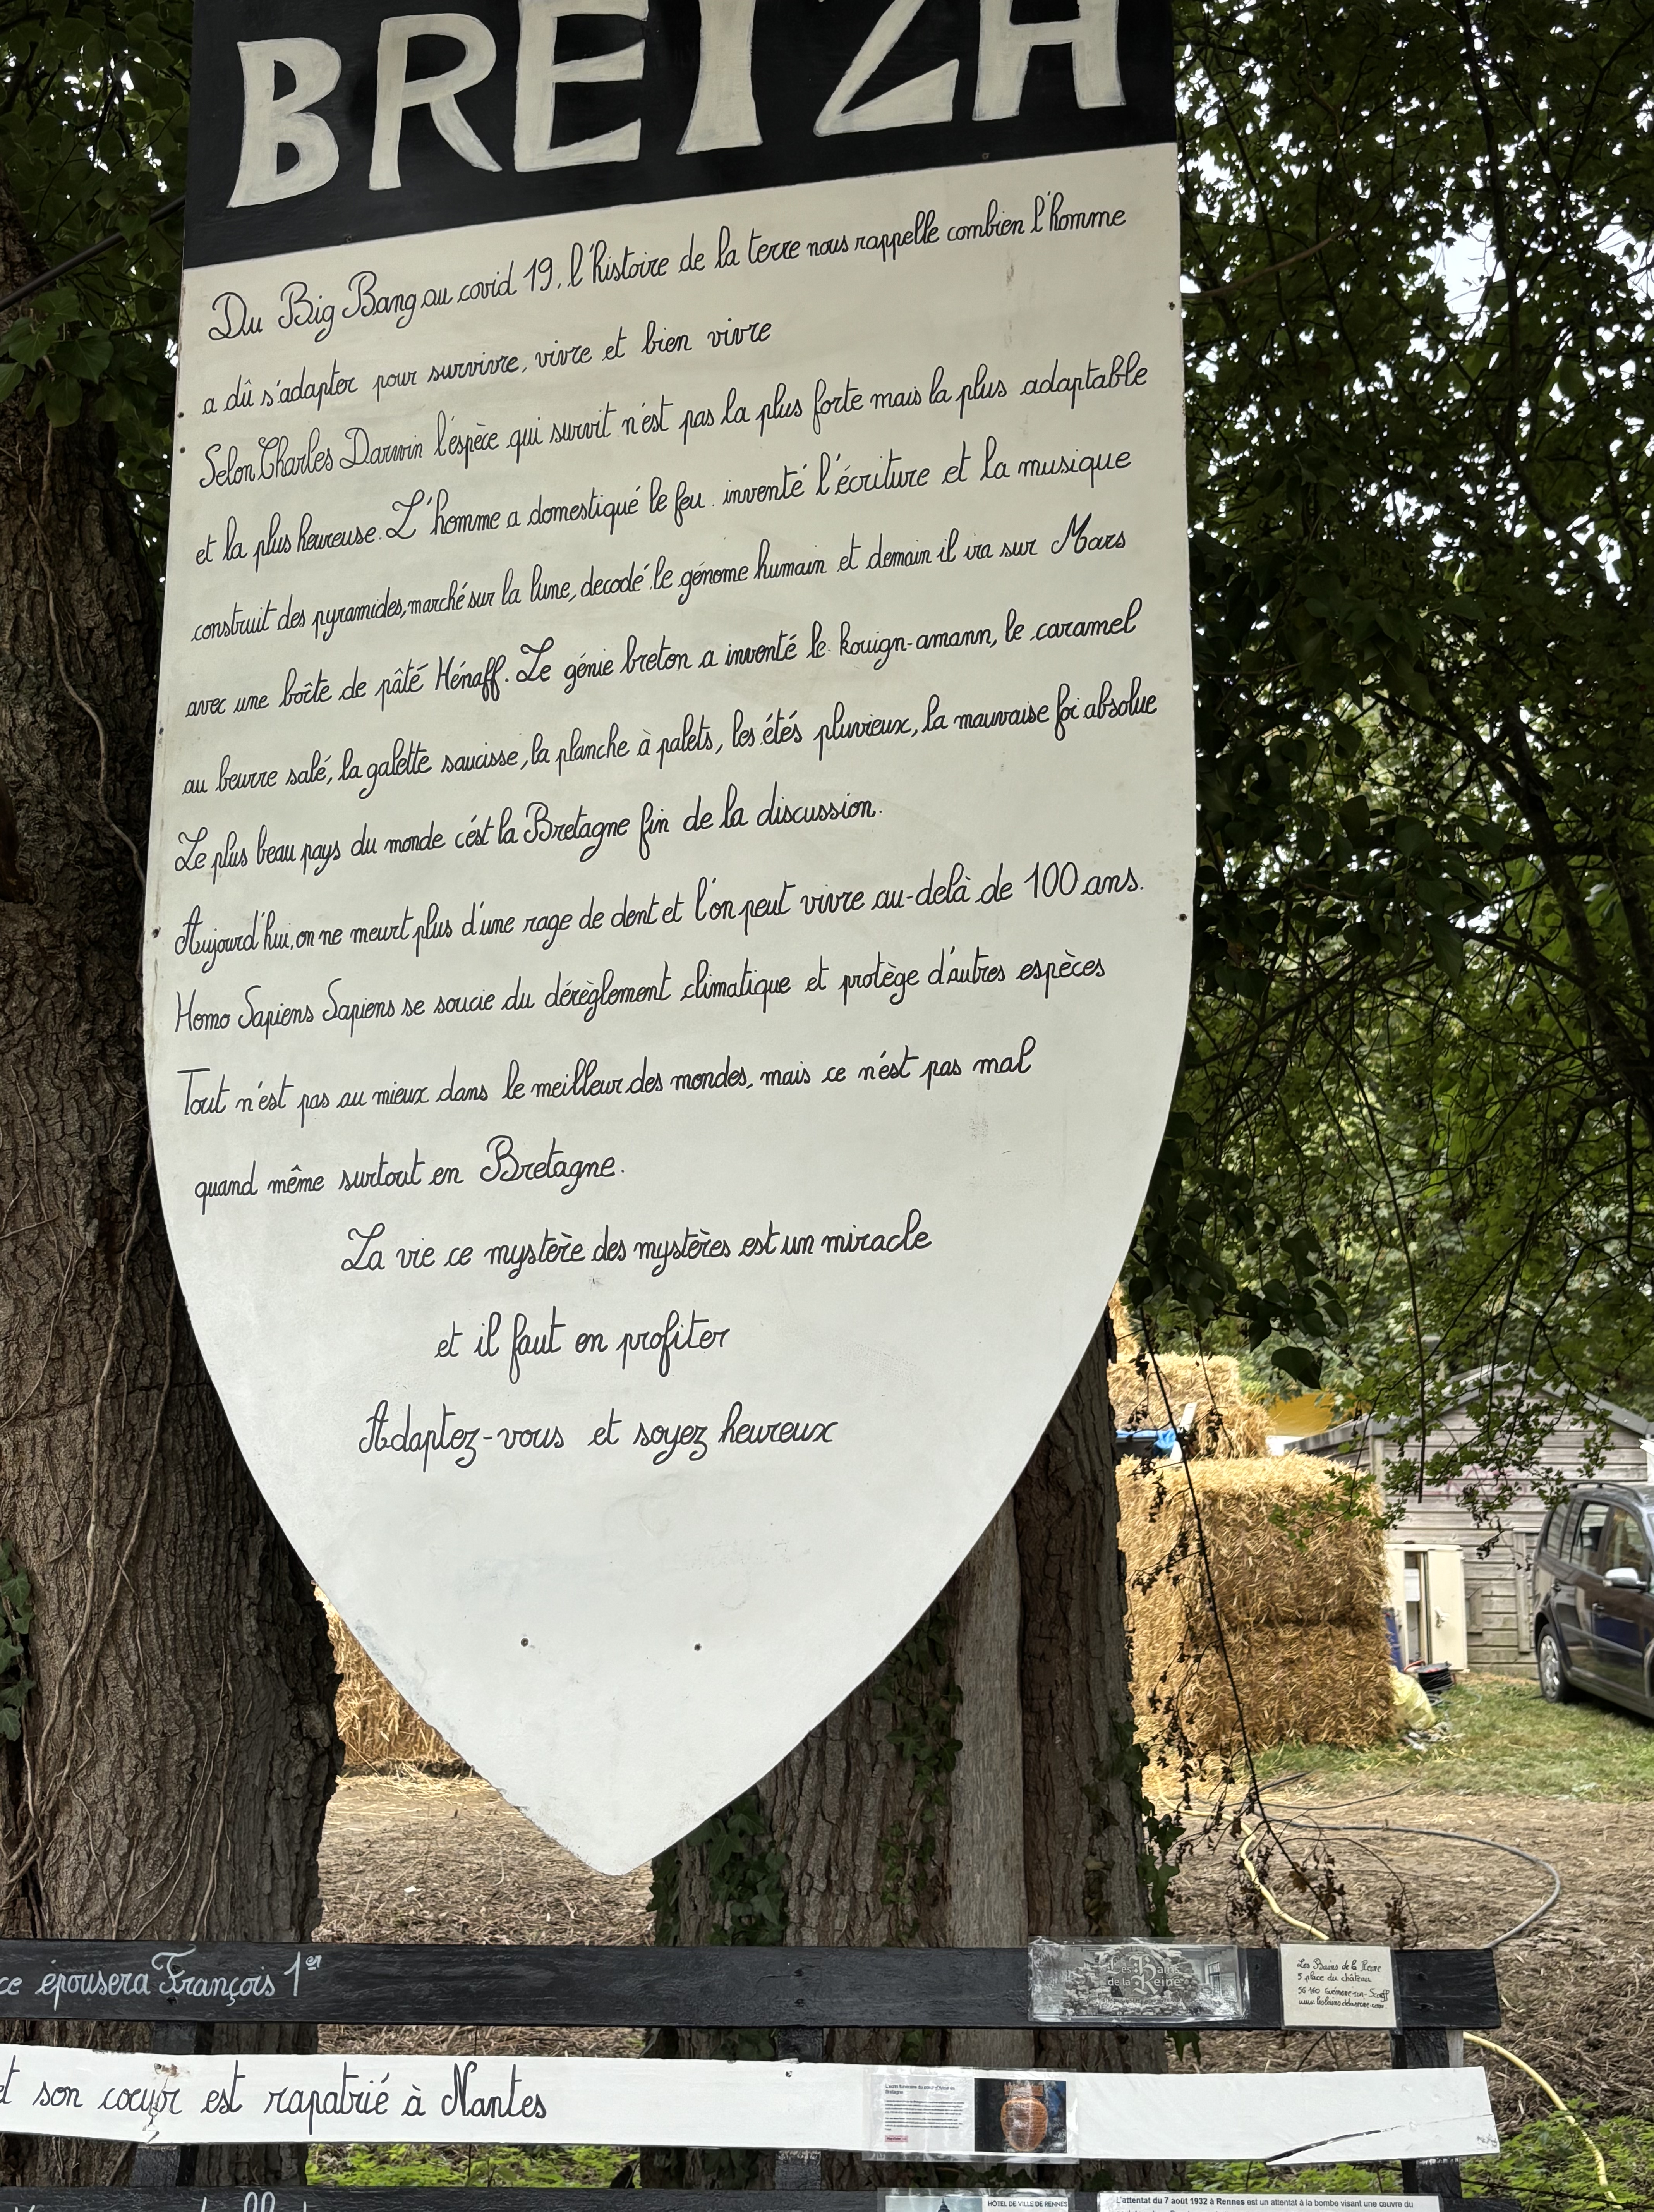 BRETZH
Du Big Bang au covid 19, l'histoire de la terre nous rappelle combien l'homme
a dû s'adapter pour survivre, vivre et bien vivre
Selon Charles Darwin l'espèce qui survit n'est pas la plus forte mais la plus adaptable
et la plus heureuse. L'homme a domestiqué le feu. inventé l'écriture et la musique
construit des pyramides, marché sur la lune, decodé le génome humain et demain il ira sur Mars
avec une boîte de pâté Hénaff. Le génie breton a inventé le kouign-amann, le caramel
au beurre salé, la galette saucisse, la planche à palets, les étés pluvieux, la mauvaise foi absolue
Le plus beau pays du monde c'est la Bretagne fin de la discussion.
Aujourd'hui, on ne meurt plus d'une rage de dent et l'on peut vivre au-delà de 100 ans.
Homo Sapiens Sapiens se soucie du dérèglement climatique et protège d'autres espèces
Tout n'est pas au mieux dans le meilleur des mondes, mais ce n'est pas mal
quand même surtout en Bretagne.
La vie ce mystère des mystères est un miracle
et il faut en profiter
Adaptez-vous et soyez heureux
ce épousera François 1er
Les Bains
de la Reine
Les Bains de la Reine
5 place du château
56 160 Guémené-sur-Scorff
et son cœur est rapatrié à Nantes
HÔTEL DE VILLE DE RENNES
L'attentat du 7 août 1932 à Rennes est un attentat à la bombe visant une œuvre du